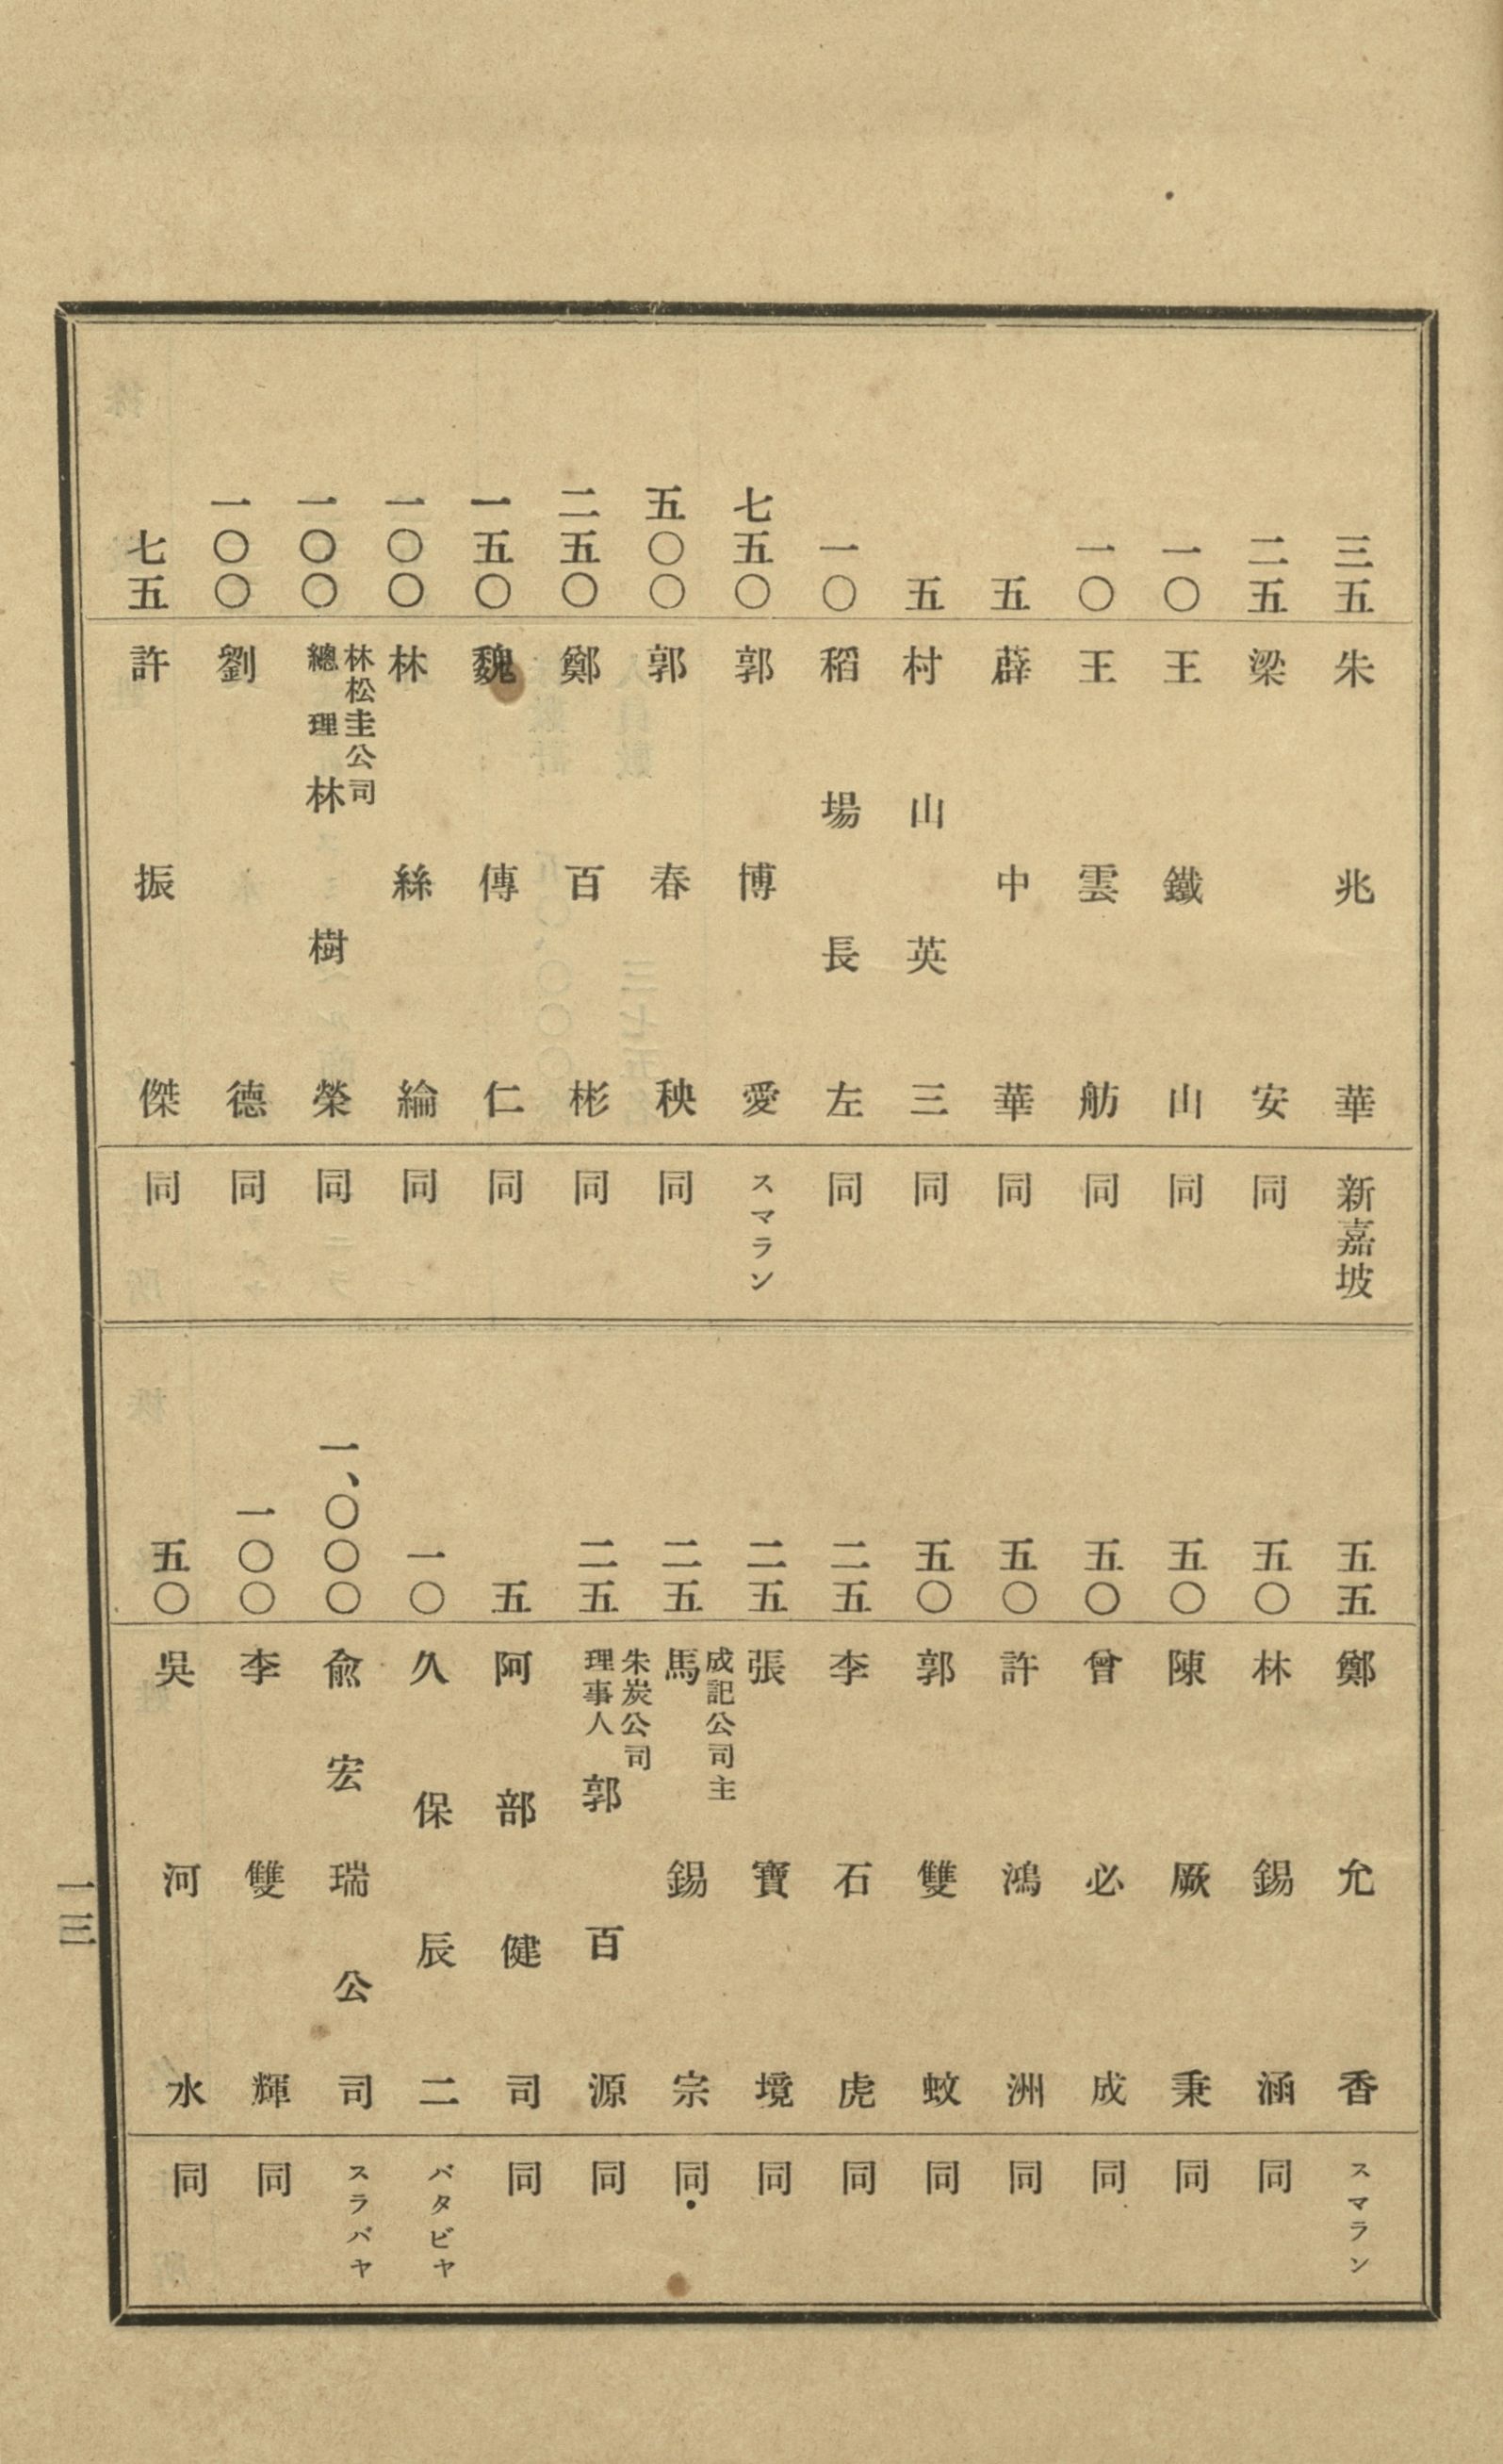 三五 朱兆華 新嘉坡
二五 梁安 同
一〇 王鐵山 同
一〇 王雲舫 同
五 薛中華 同
五 村山英三 同
一〇 稻場長左 同
七五〇 郭博愛 スマラン
五〇〇 郭春秧 同
二五〇 鄭百彬 同
一五〇 魏傳仁 同
一〇〇 林絲綸 同
一〇〇 林松圭公司總理 林樹榮 同
一〇〇 劉德 同
七五 許振傑 同
五五 鄭允香 スマラン
五〇 林錫涵 同
五〇 陳厥秉 同
五〇 曾必成 同
五〇 許鴻洲 同
五〇 郭雙蚊 同
二五 李石虎 同
二五 張寶境 同
二五 成記公司主 馬錫宗 同
二五 朱炭公司理事人 郭百源 同
五 阿部健司 同
一〇 久保辰二 バタビヤ
一、〇〇〇 兪宏瑞公司 スラバヤ
一〇〇 李雙輝 同
五〇 吳河水 同
一三